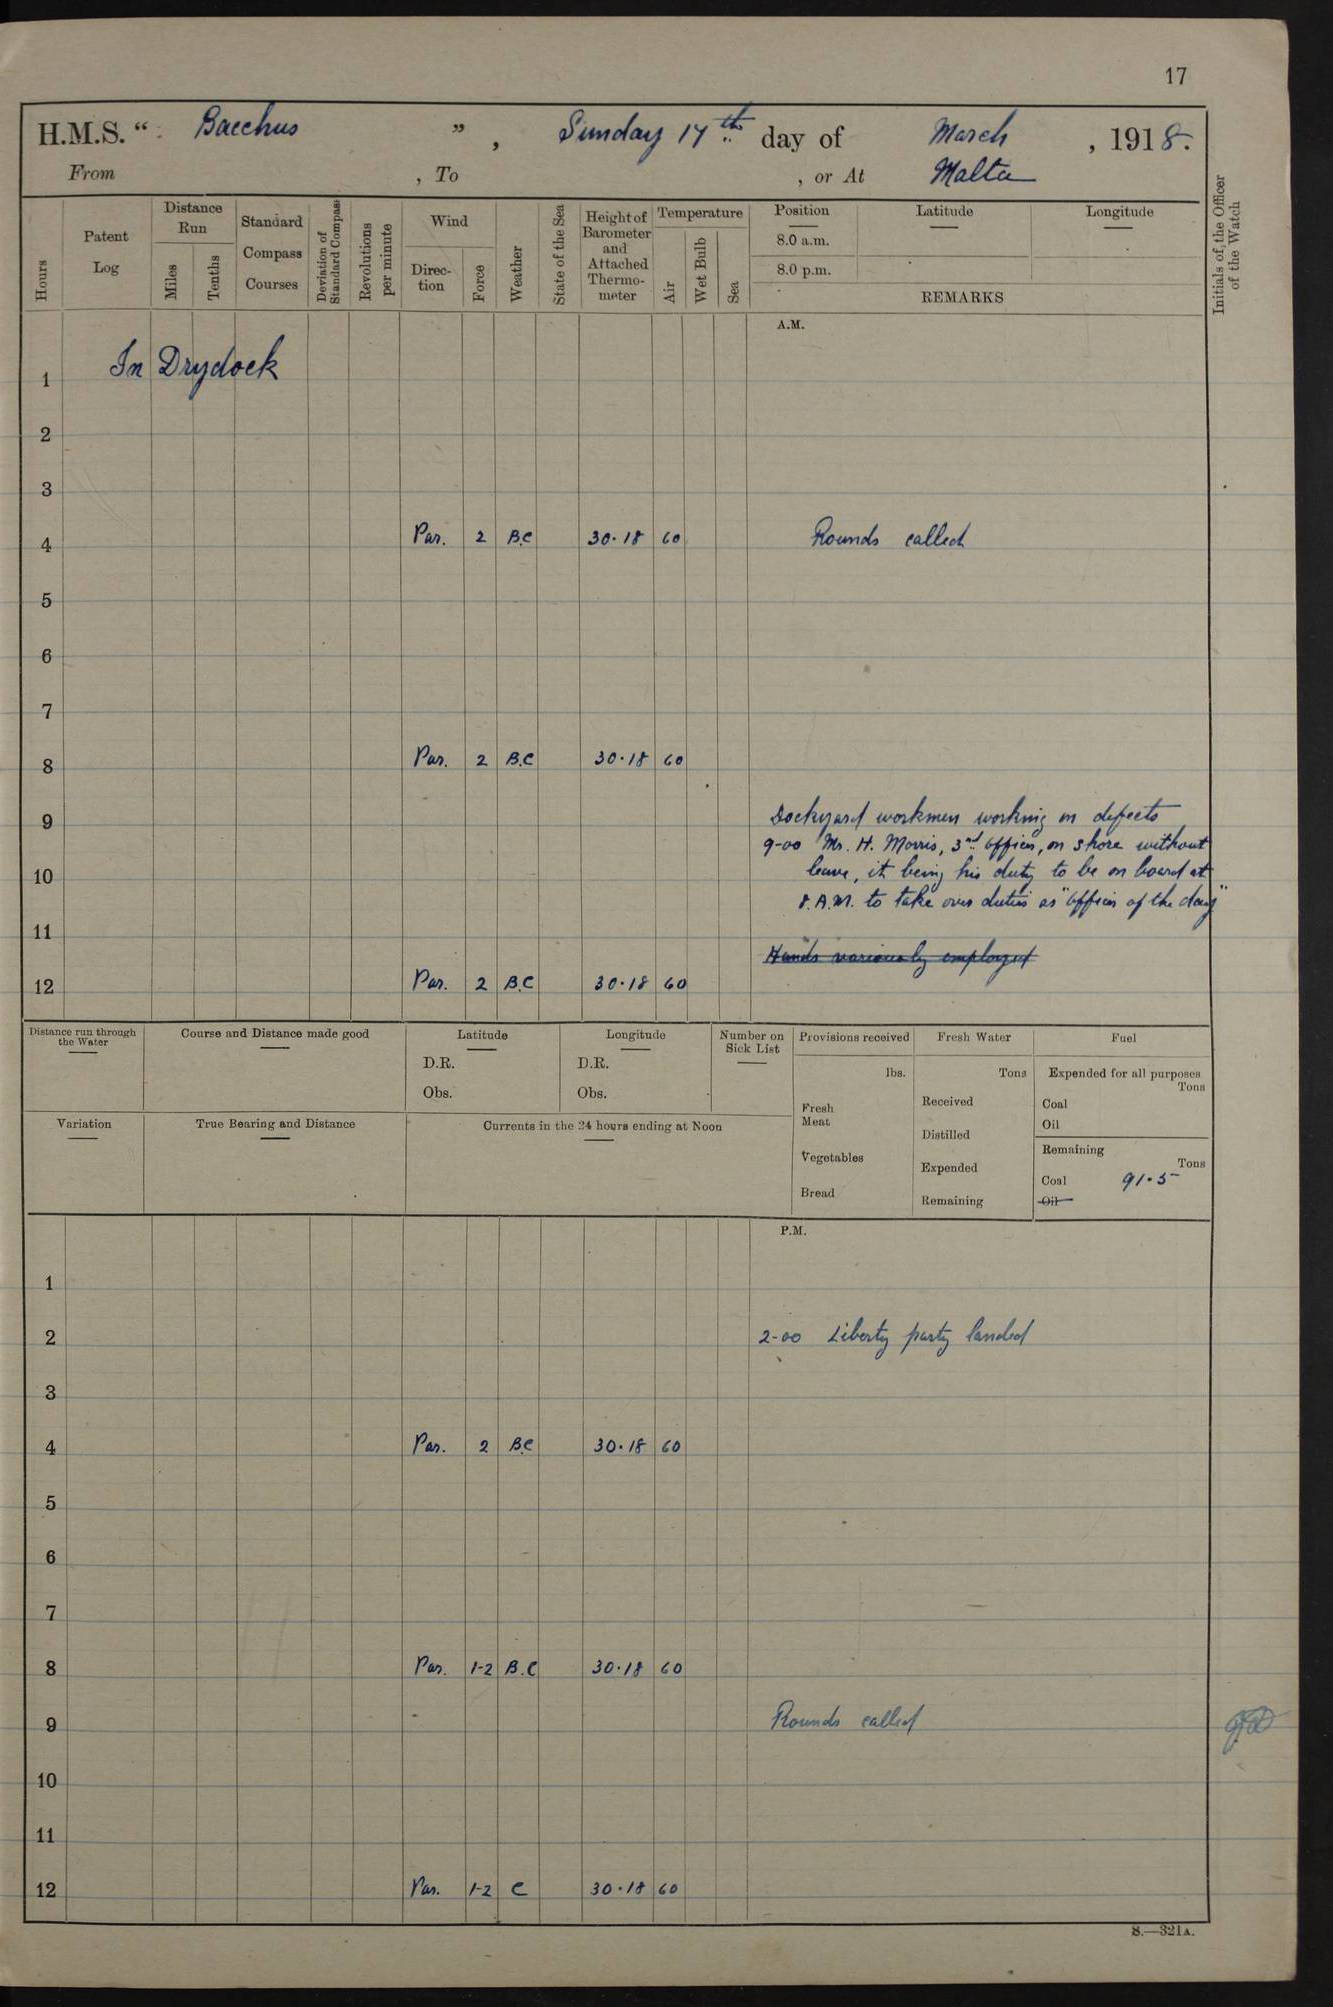 17
H.M.S. “ Bacchus ” , Sunday 17th day of March , 1918.
From , To , or At Malta
Hours
Patent Log
Distance Run
Miles
Tenths
Standard Compass Courses
Deviation of Standard Compass
Revolutions per minute
Wind
Direc-tion
Force
Weather
State of the Sea
Height of Barometer and Attached Thermo-meter
Temperature
Air
Wet Bulb
Sea
Position Latitude Longitude
8.0 a.m.
8.0 p.m.
REMARKS
Initials of the Officer of the Watch
A.M.
1 In Drydock
2
3
4 Par. 2 B.C 30.18 60 Rounds called
5
6
7
8 Par. 2 B.C 30.18 60
9 Dockyard workmen working on defects
9-00 Mr. H. Morris, 3rd Officer, on shore without
10 leave, it being his duty to be on board at
8.A.M. to take over duties as "Officer of the day"
11
Hands variously employed
12 Par. 2 B.C 30.18 60
Distance run through the Water
Course and Distance made good
Latitude
D.R.
Obs.
Longitude
D.R.
Obs.
Number on Sick List
Provisions received
lbs.
Fresh Meat
Vegetables
Bread
Fresh Water
Tons
Received
Distilled
Expended
Remaining
Fuel
Expended for all purposes
Tons
Coal
Oil
Remaining
Tons
Coal 91.5
Oil
Variation
True Bearing and Distance
Currents in the 24 hours ending at Noon
P.M.
1
2 2-00 Liberty party landed
3
4 Par. 2 B.C 30.18 60
5
6
7
8 Par. 1-2 B.C 30.18 60
9 Rounds called
10
11
12 Par. 1-2 C 30.18 60
S.—321A.